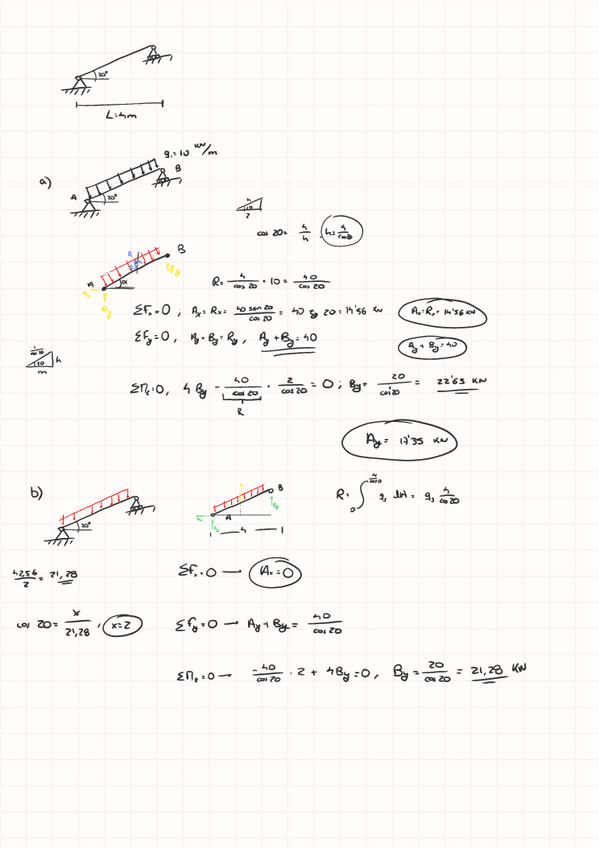 20°
L=4m
a)
q=10 kN/m
A
B
20°
cos 20= 4/h, h= 4/cos20
A
B
α
R= 4/cos 20 · 10 = 40/cos 20
ΣFx=0, Ax=Rx= 40 sen 20/cos 20 = 40 tg 20= 14'56 kN
Ax=Rx=14'56 kN
ΣFy=0, Ay+By=Ry, Ay+By=40
Ay+By=40
h
20
m
ΣM=0, 4 By - 40/cos 20 · 2/cos 20 = 0; By= 20/cos²20 = 22'65 kN
R
Ay= 17'35 kN
b)
20°
B
A
4
R= ∫ q, = q, 4/cos 20
42,56/2 = 21,28
ΣFx=0 → Ax=0
cos 20= x/21,28, x=2
ΣFy=0 → Ay+By= 40/cos 20
ΣM=0 → -40/cos 20 · 2 + 4By=0, By= 20/cos 20 = 21,28 kN